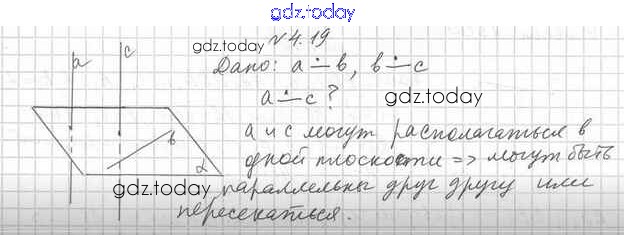 gdz.today
gdz.today
№4.19
Дано: a ∸ b, b ∸ c
a ∸ c?
gdz.today
a и c могут располагаться в
одной плоскости => могут быть
gdz.today
параллельны друг другу или
пересекаться.
a
c
b
α